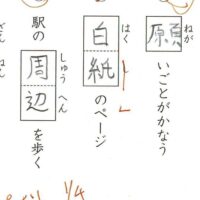 願いごとがかなう
ねが
白紙のページ
はく し
駅の周辺を歩く
しゅう へん
1/4